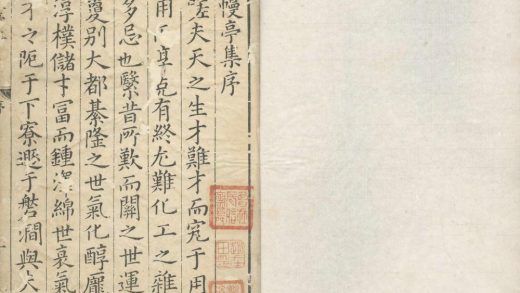 幔亭集序
嗟夫天之生才難才而寃于用
用而卒克有終尤難化工之雜
多忌也繄昔所歎而關之世運
夐别大都綦隆之世氣化醇龐
淳樸儲才富而鍾深綿世衰氣
才之阨于下寮遯于磐澗與夭